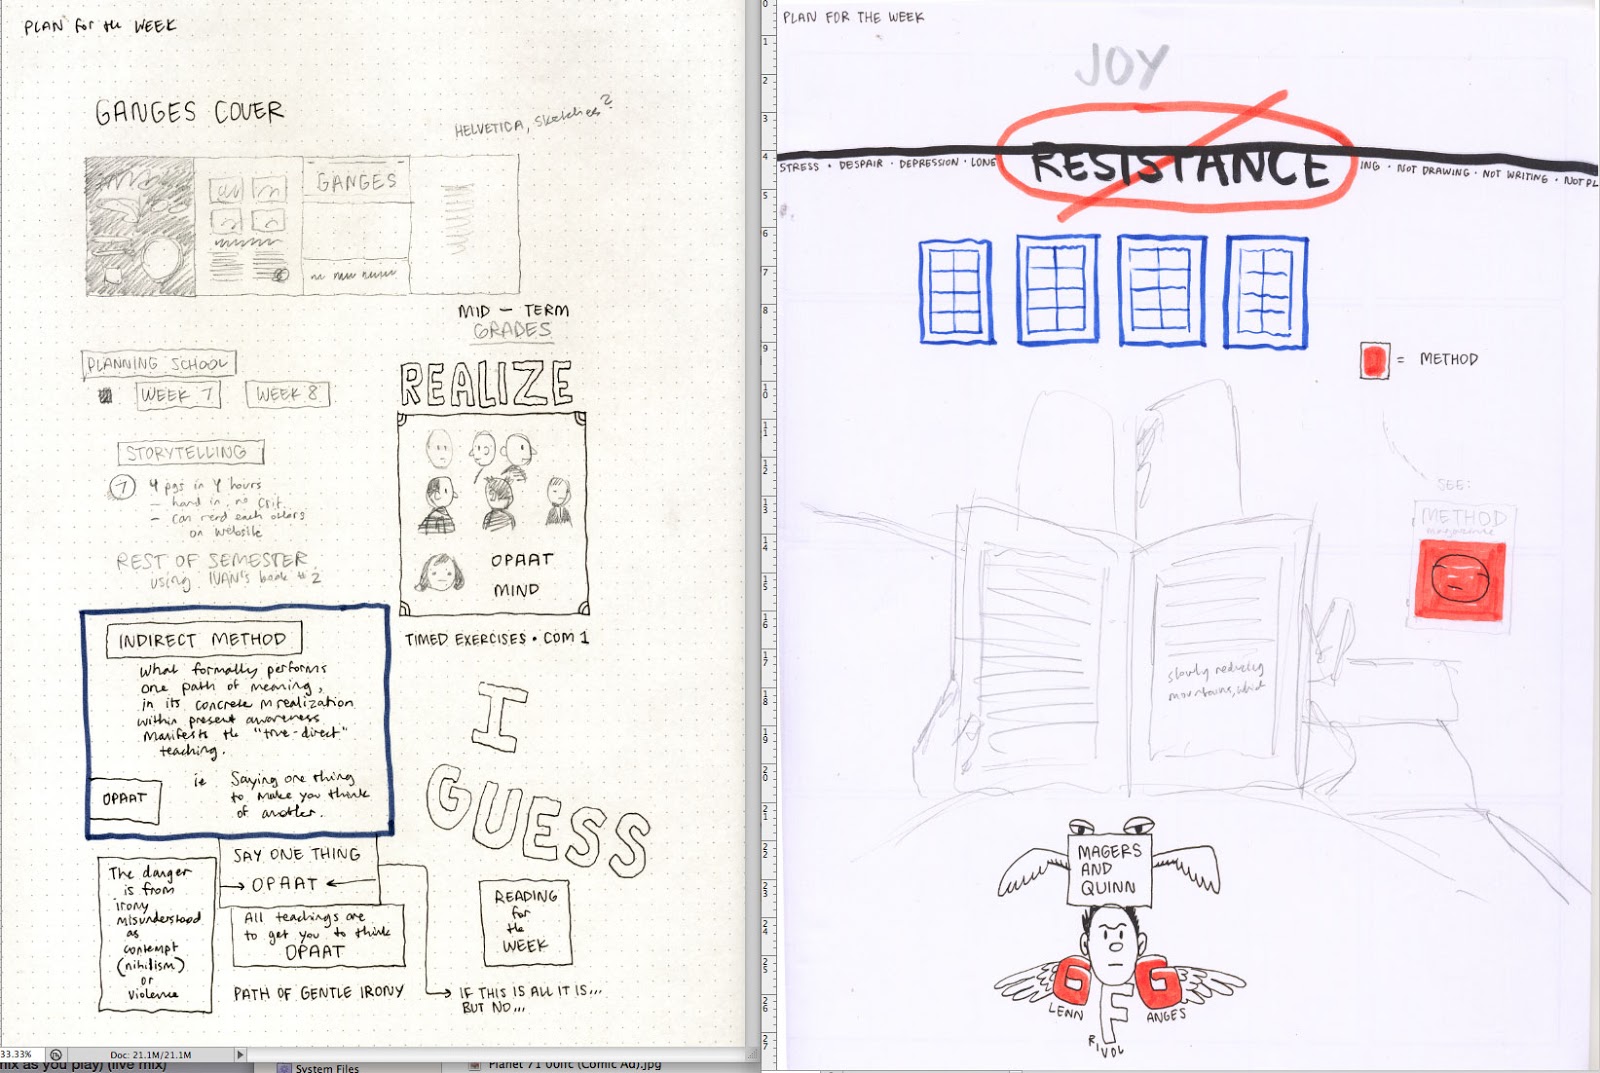 PLAN for the WEEK
GANGES COVER
HELVETICA, Sketches?
GANGES
MID - TERM
GRADES
PLANNING SCHOOL
WEEK 7
WEEK 8
REALIZE
STORYTELLING
7
4 pgs in 4 hours
- hand in, no crit.
- can read each others
on website
REST OF SEMESTER
using IVAN's book #2
OPAAT
MIND
TIMED EXERCISES • COM 1
INDIRECT METHOD
What formally performs
one path of meaning,
in its concrete realization
within present awareness
manifests the "true-direct"
teaching.
ie Saying one thing
to make you think
of another.
OPAAT
I
GUESS
SAY ONE THING
OPAAT
The danger
is from
irony
misunderstood
as
contempt
(nihilism)
or
violence
All teachings are
to get you to think
OPAAT
PATH OF GENTLE IRONY
READING
for
the
WEEK
IF THIS IS ALL IT IS...
BUT NO...
33.33%
Doc: 21.1M/21.1M
mix as you play) (live mix)
System Files
Planet 71 (Comic Ad).jpg
PLAN FOR THE WEEK
JOY
STRESS • DESPAIR • DEPRESSION • LONE
RESISTANCE
ING • NOT DRAWING • NOT WRITING • NOT PL
= METHOD
SEE:
METHOD
magazine
slowly reducing
mountains, which
MAGERS
AND
QUINN
G
G
LENN
F
ANGES
R, VOL
0
1
2
3
4
5
6
7
8
9
10
11
12
13
14
15
16
17
18
19
20
21
22
23
24
25
26
27